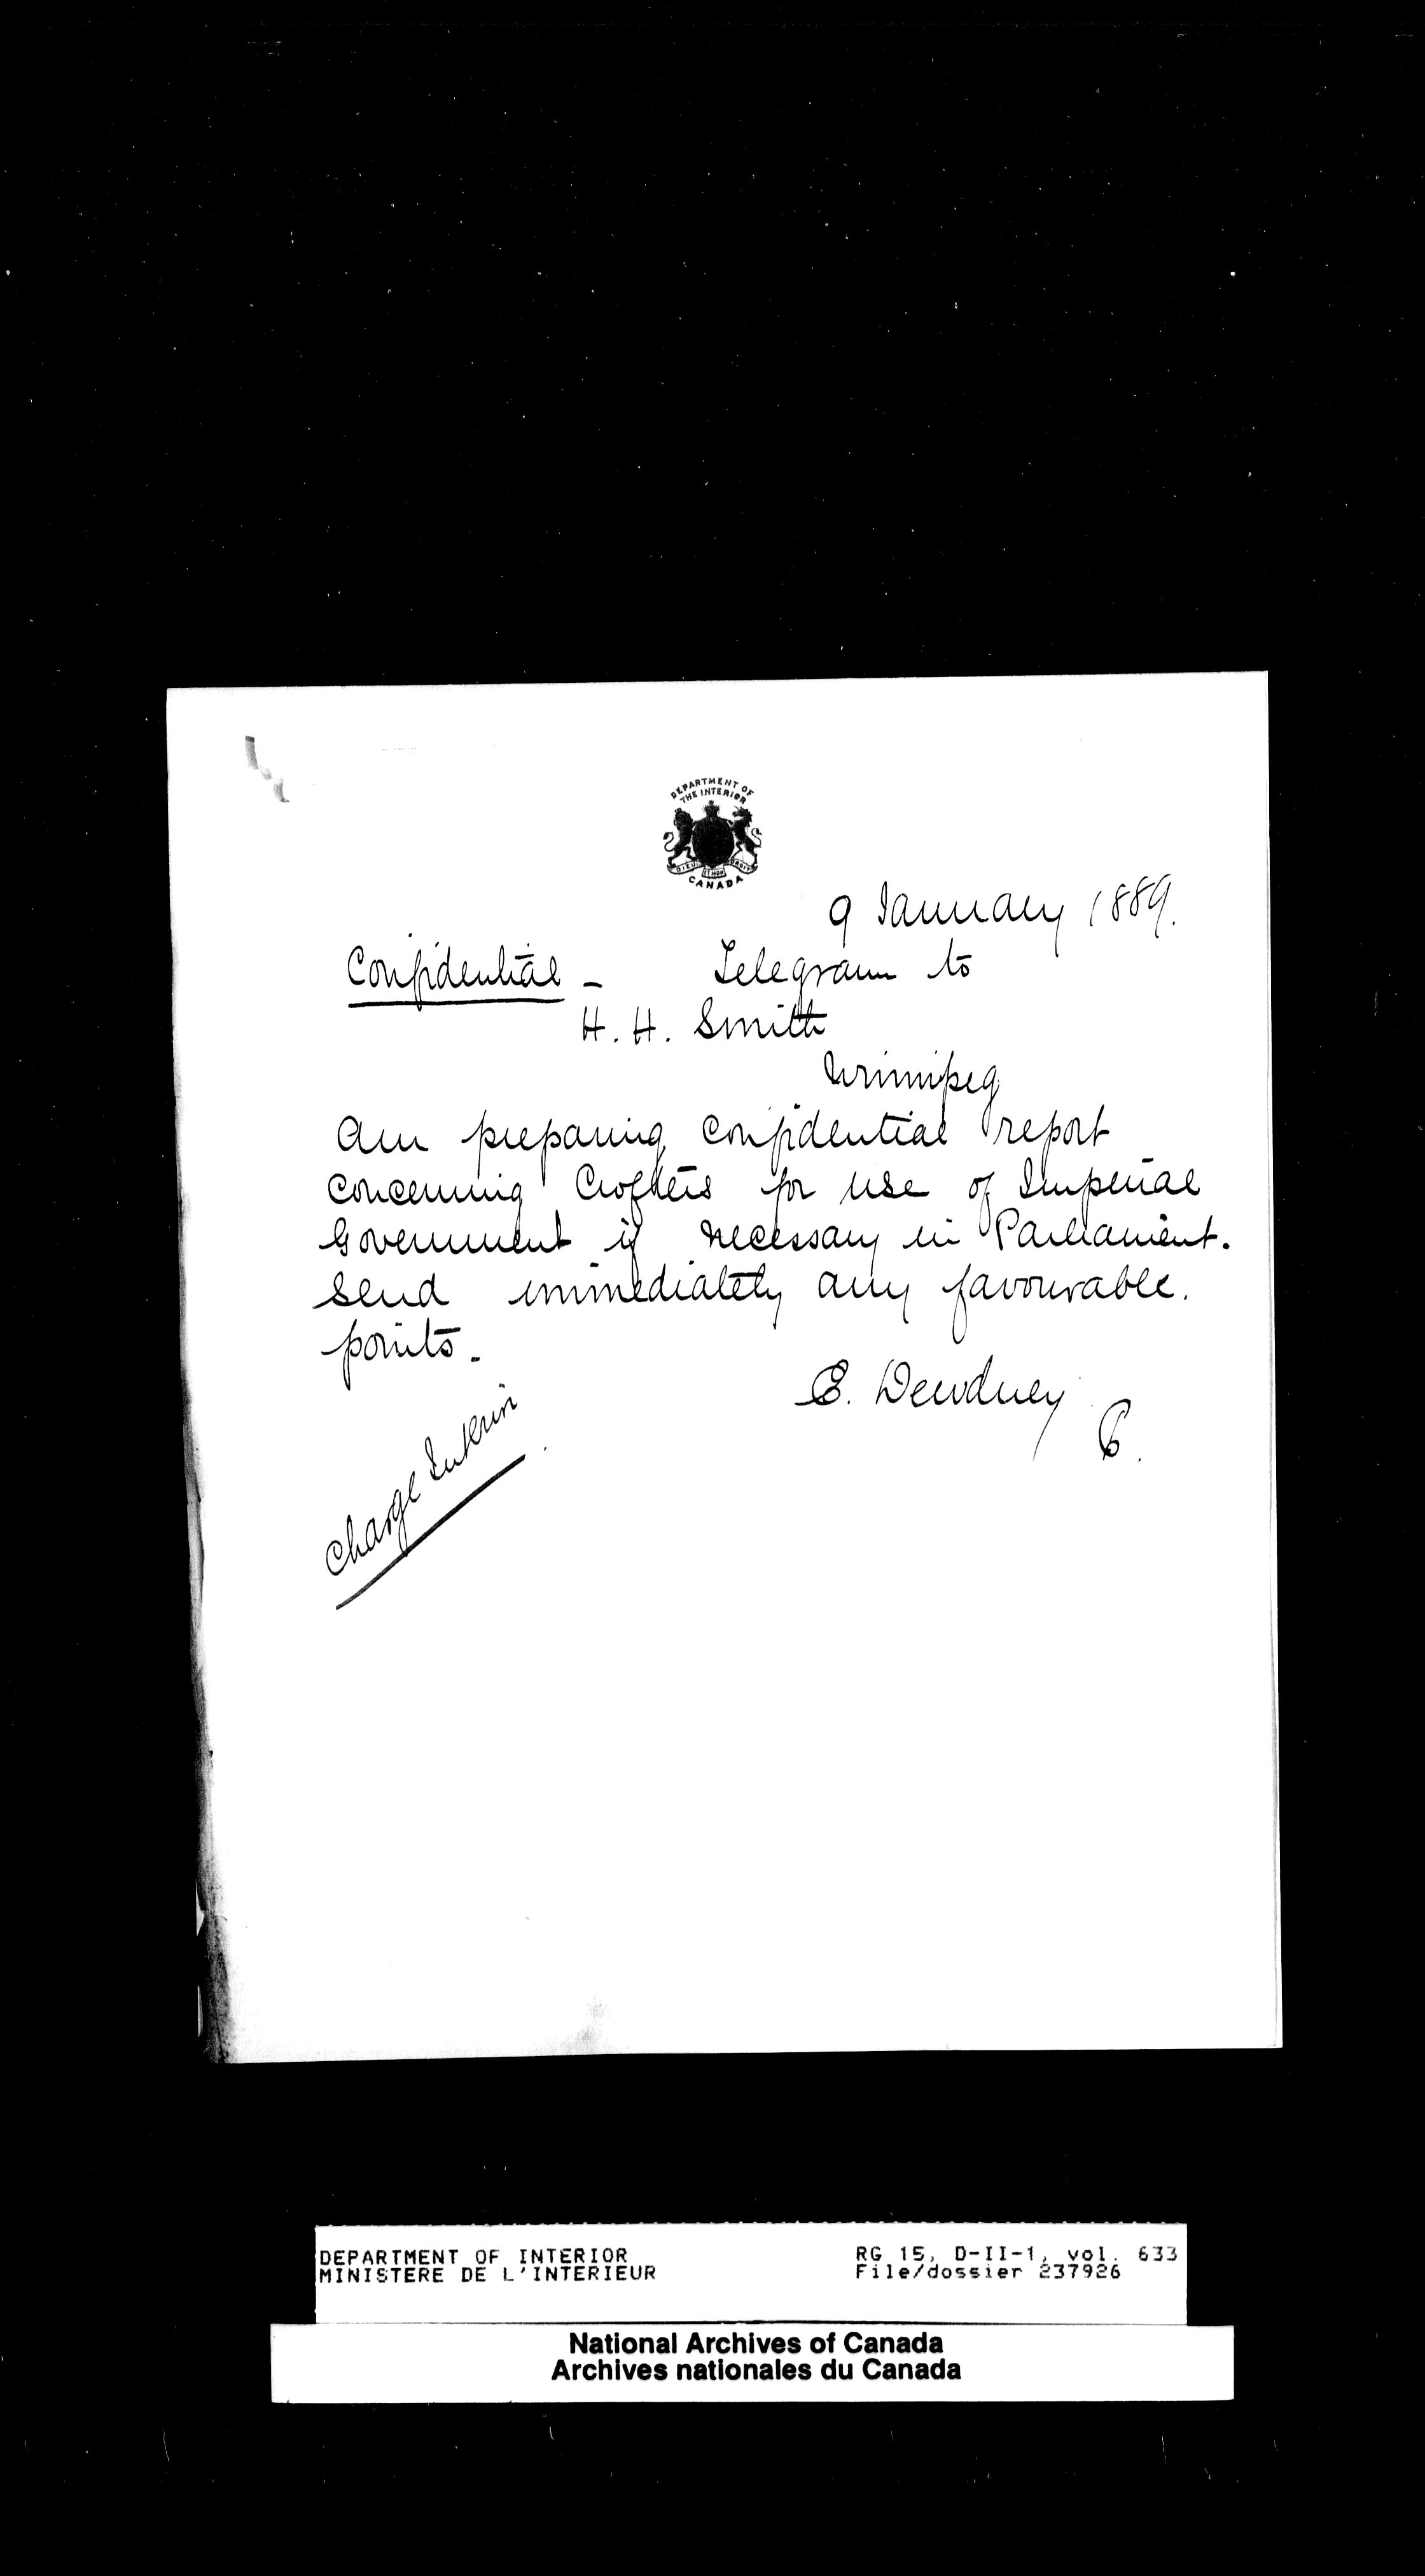 DEPARTMENT OF
THE INTERIOR
DIEU ET MON DROIT
CANADA
9 January 1889.
Confidential - Telegram to
H. H. Smith
Winnipeg
Am preparing confidential report
concerning Crofters for use of Imperial
Government if necessary in Parliament.
Send immediately any favourable.
points.
E. Dewdney
Charge Interior
DEPARTMENT OF INTERIOR
MINISTERE DE L'INTERIEUR
RG 15, D-II-1, vol. 633
File/dossier 237926
National Archives of Canada
Archives nationales du Canada